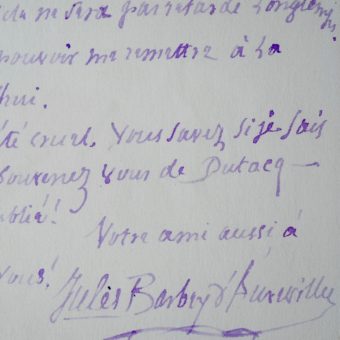 ne sera pas retardé longtemps.
pouvoir me remettre à la
hui.
été cruel. Vous savez si je sais
Souvenez vous de Dutacq —
ublié!
Votre ami aussi à
vous!
Jules Barbey d'Aurevilly